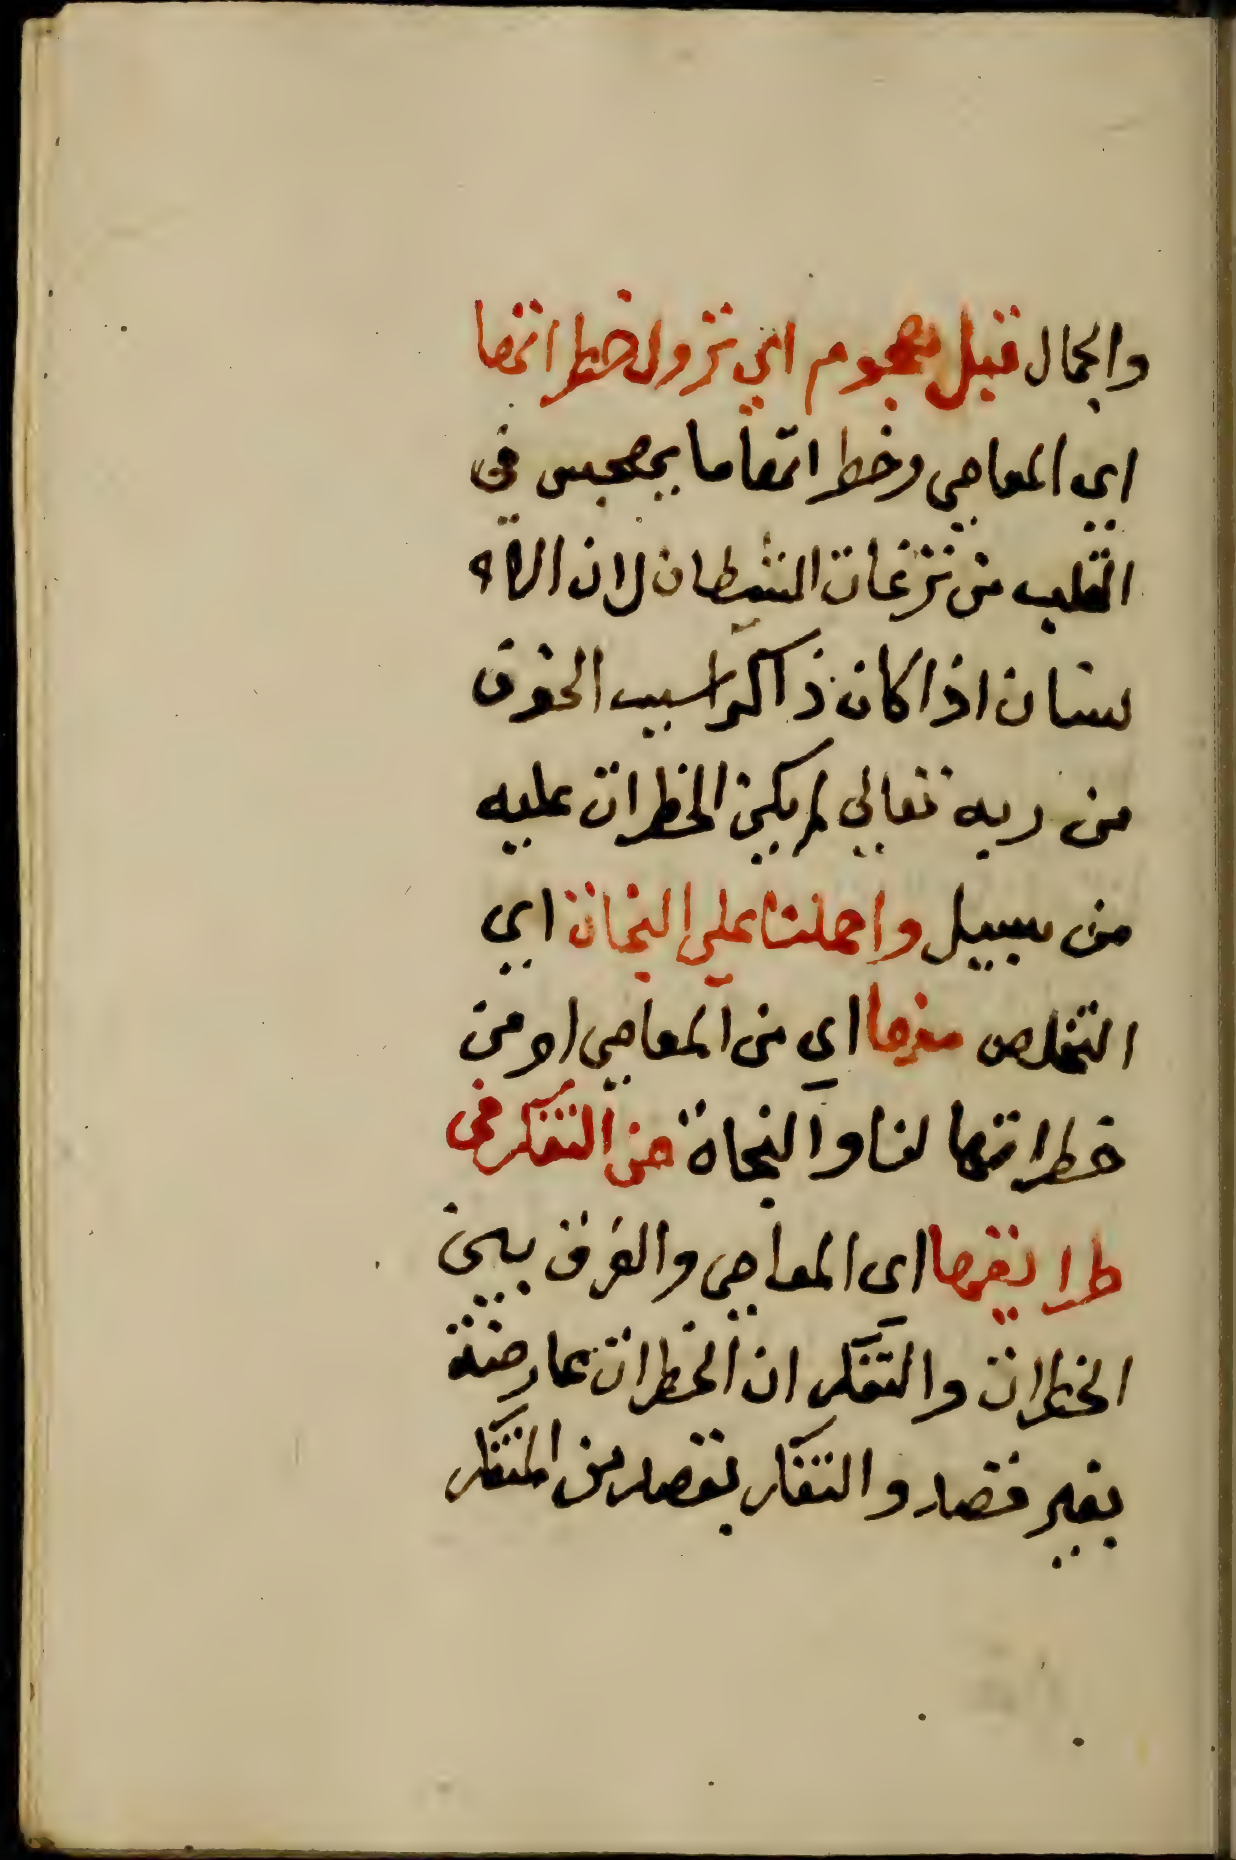 والجمال قبل هجوم اي نزول خطراتها
اي المعاصي وخطراتها ما يهجس في
القلب من نزغات الشيطان لان الا
نسان اذا كان ذاكرا سبب الخوف
من ربه تعالي لم يكن للخطرات عليه
من سبيل واحملنا علي النجاة اي
التخلص منها اي من المعاصي او من
خطراتها لنا والنجاة من التفكر في
طرايقها اي المعاصي والفرق بين
الخطرات والتفكر ان الخطرات عارضة
بغير قصد والتفكر بقصد من المتفكر